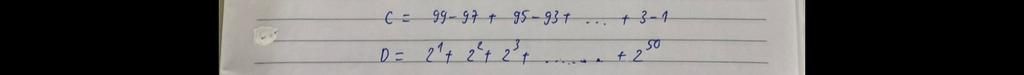 C = 99 - 97 + 95 - 93 + ... + 3 - 1
D = 2¹ + 2² + 2³ + ........ + 2⁵⁰